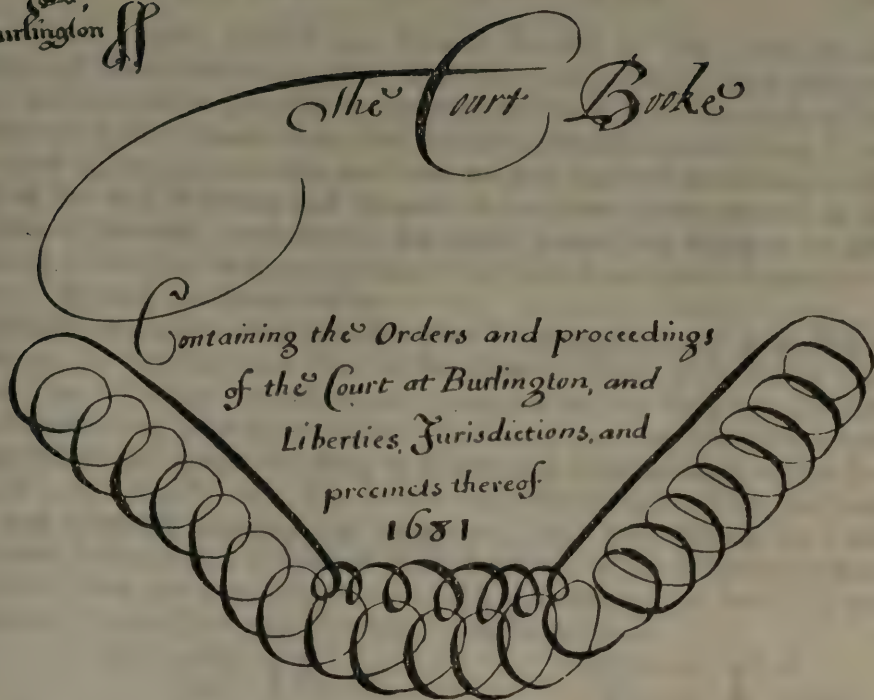 Burlington, ss
The Court Booke
Containing the Orders and proceedings
of the Court at Burlington, and
Liberties, Jurisdictions, and
precincts thereof
1681